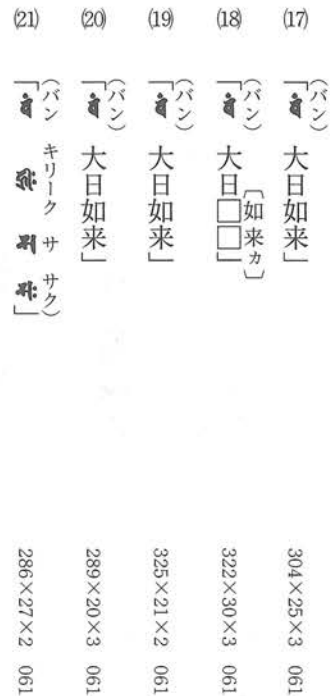 (17) 「(バン) 大日如来」 304×25×3 061
(18) 「(バン) 大日□□〔如来ヵ〕」 322×30×3 061
(19) 「(バン) 大日如来」 325×21×2 061
(20) 「(バン) 大日如来」 289×20×3 061
(21) 「(バン キリーク サ サク)」 286×27×2 061